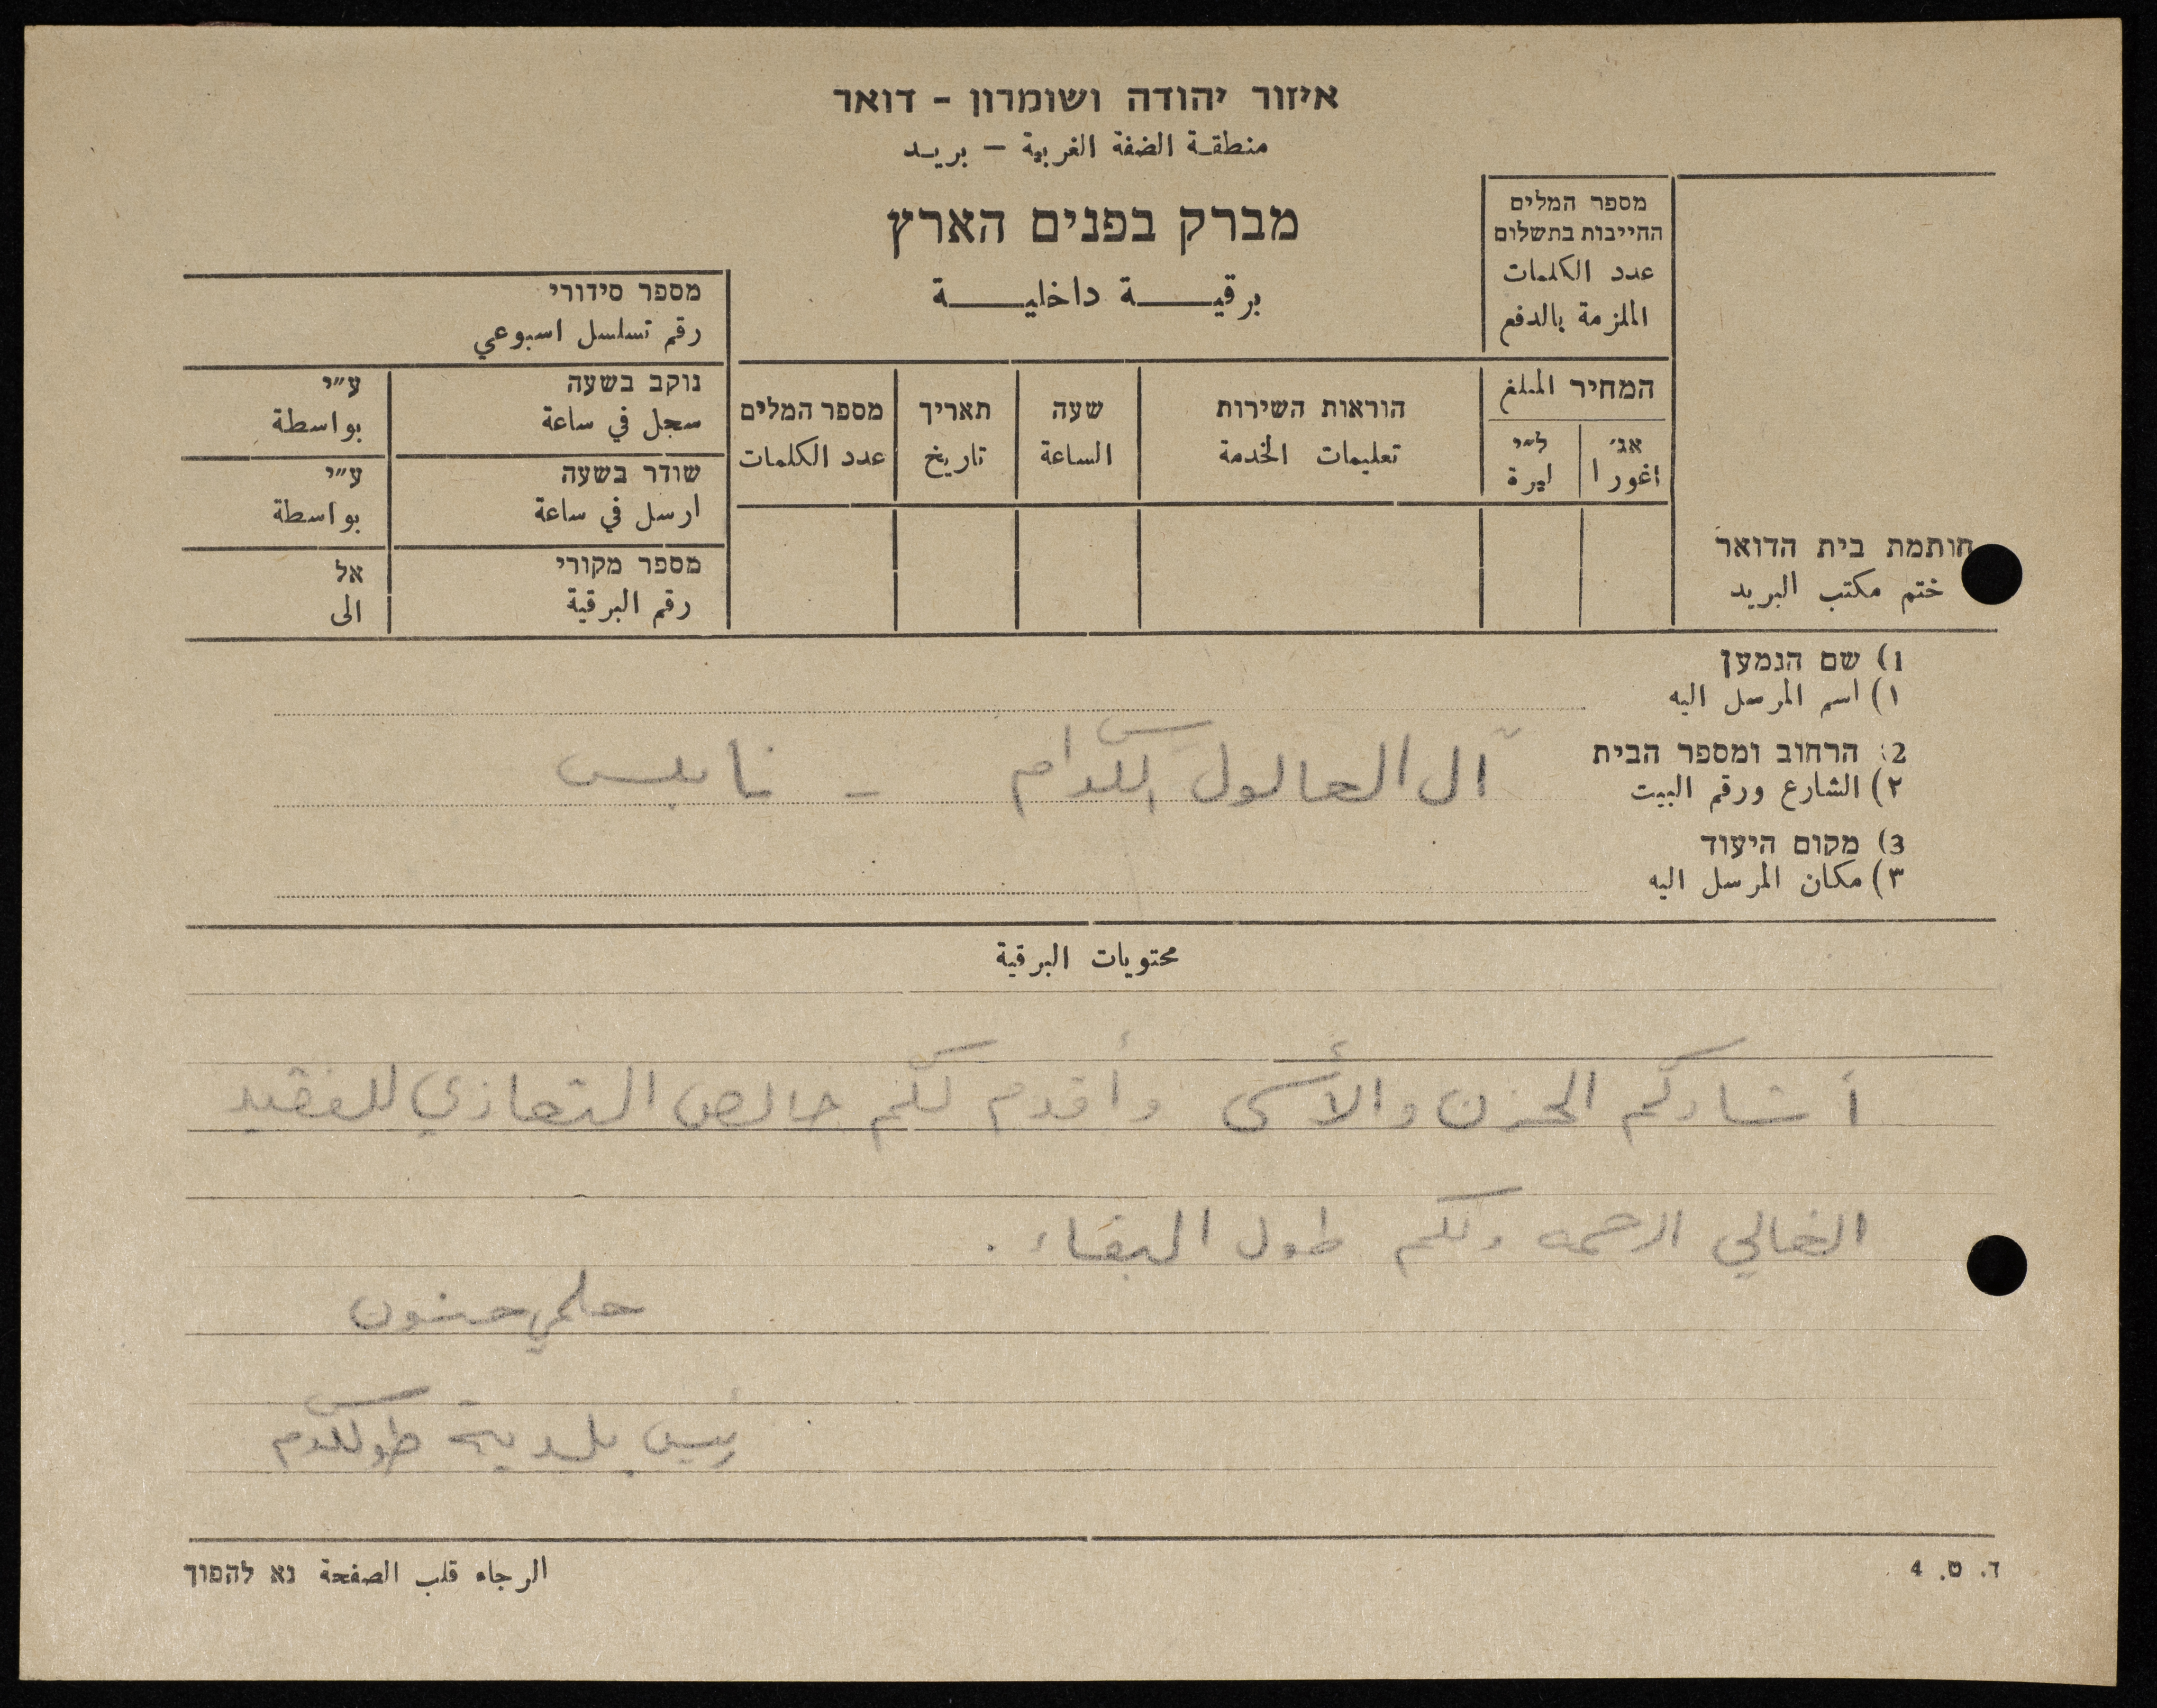 איזור יהודה ושומרון - דואר
منطقة الضفة الغربية - بريد
מברק בפנים הארץ
برقية داخلية
מספר המלים
החייבות בתשלום
عدد الكلمات
الملزمة بالدفع
המחיר المبلغ
אג׳ ל״י
اغورا ليرة
הוראות השירות
تعليمات الخدمة
שעה
الساعة
תאריך
تاريخ
מספר המלים
عدد الكلمات
מספר סידורי
رقم تسلسل اسبوعي
נוקב בשעה ע״י
سجل في ساعة بواسطة
שודר בשעה ע״י
ارسل في ساعة بواسطة
מספר מקורי אל
رقم البرقية الى
חותמת בית הדואר
ختم مكتب البريد
1) שם הנמען
١) اسم المرسل اليه
2) הרחוב ומספר הבית
٢) الشارع ورقم البيت
آل العالول الكرام - نابلس
3) מקום היעוד
٣) مكان المرسل اليه
محتويات البرقية
أشاركم الحزن والأسى وأقدم لكم خالص التعازي للفقيد
الغالي الرحمه ولكم طول البقاء .
حلمي حنون
رئيس بلدية طولكرم
ד. ט. 4
الرجاء قلب الصفحة נא להפוך